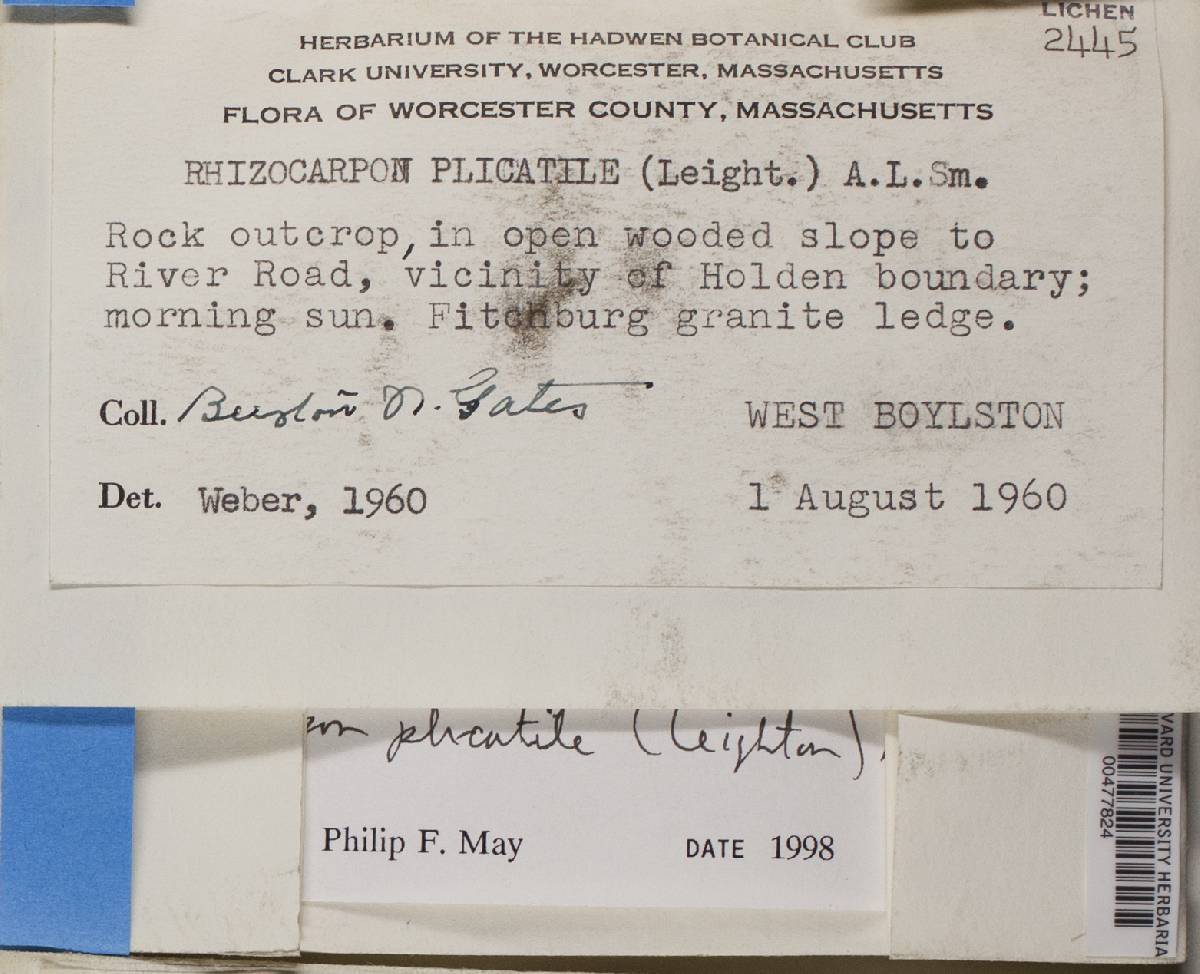 LICHEN
2445
HERBARIUM OF THE HADWEN BOTANICAL CLUB
CLARK UNIVERSITY, WORCESTER, MASSACHUSETTS
FLORA OF WORCESTER COUNTY, MASSACHUSETTS
RHIZOCARPON PLICATILE (Leight.) A.L.Sm.
Rock outcrop, in open wooded slope to
River Road, vicinity of Holden boundary;
morning sun. Fitchburg granite ledge.
Coll. Burton N. Gates
WEST BOYLSTON
Det. Weber, 1960
1 August 1960
plicatile (Leighton)
Philip F. May DATE 1998
VARD UNIVERSITY HERBARIA
00477824